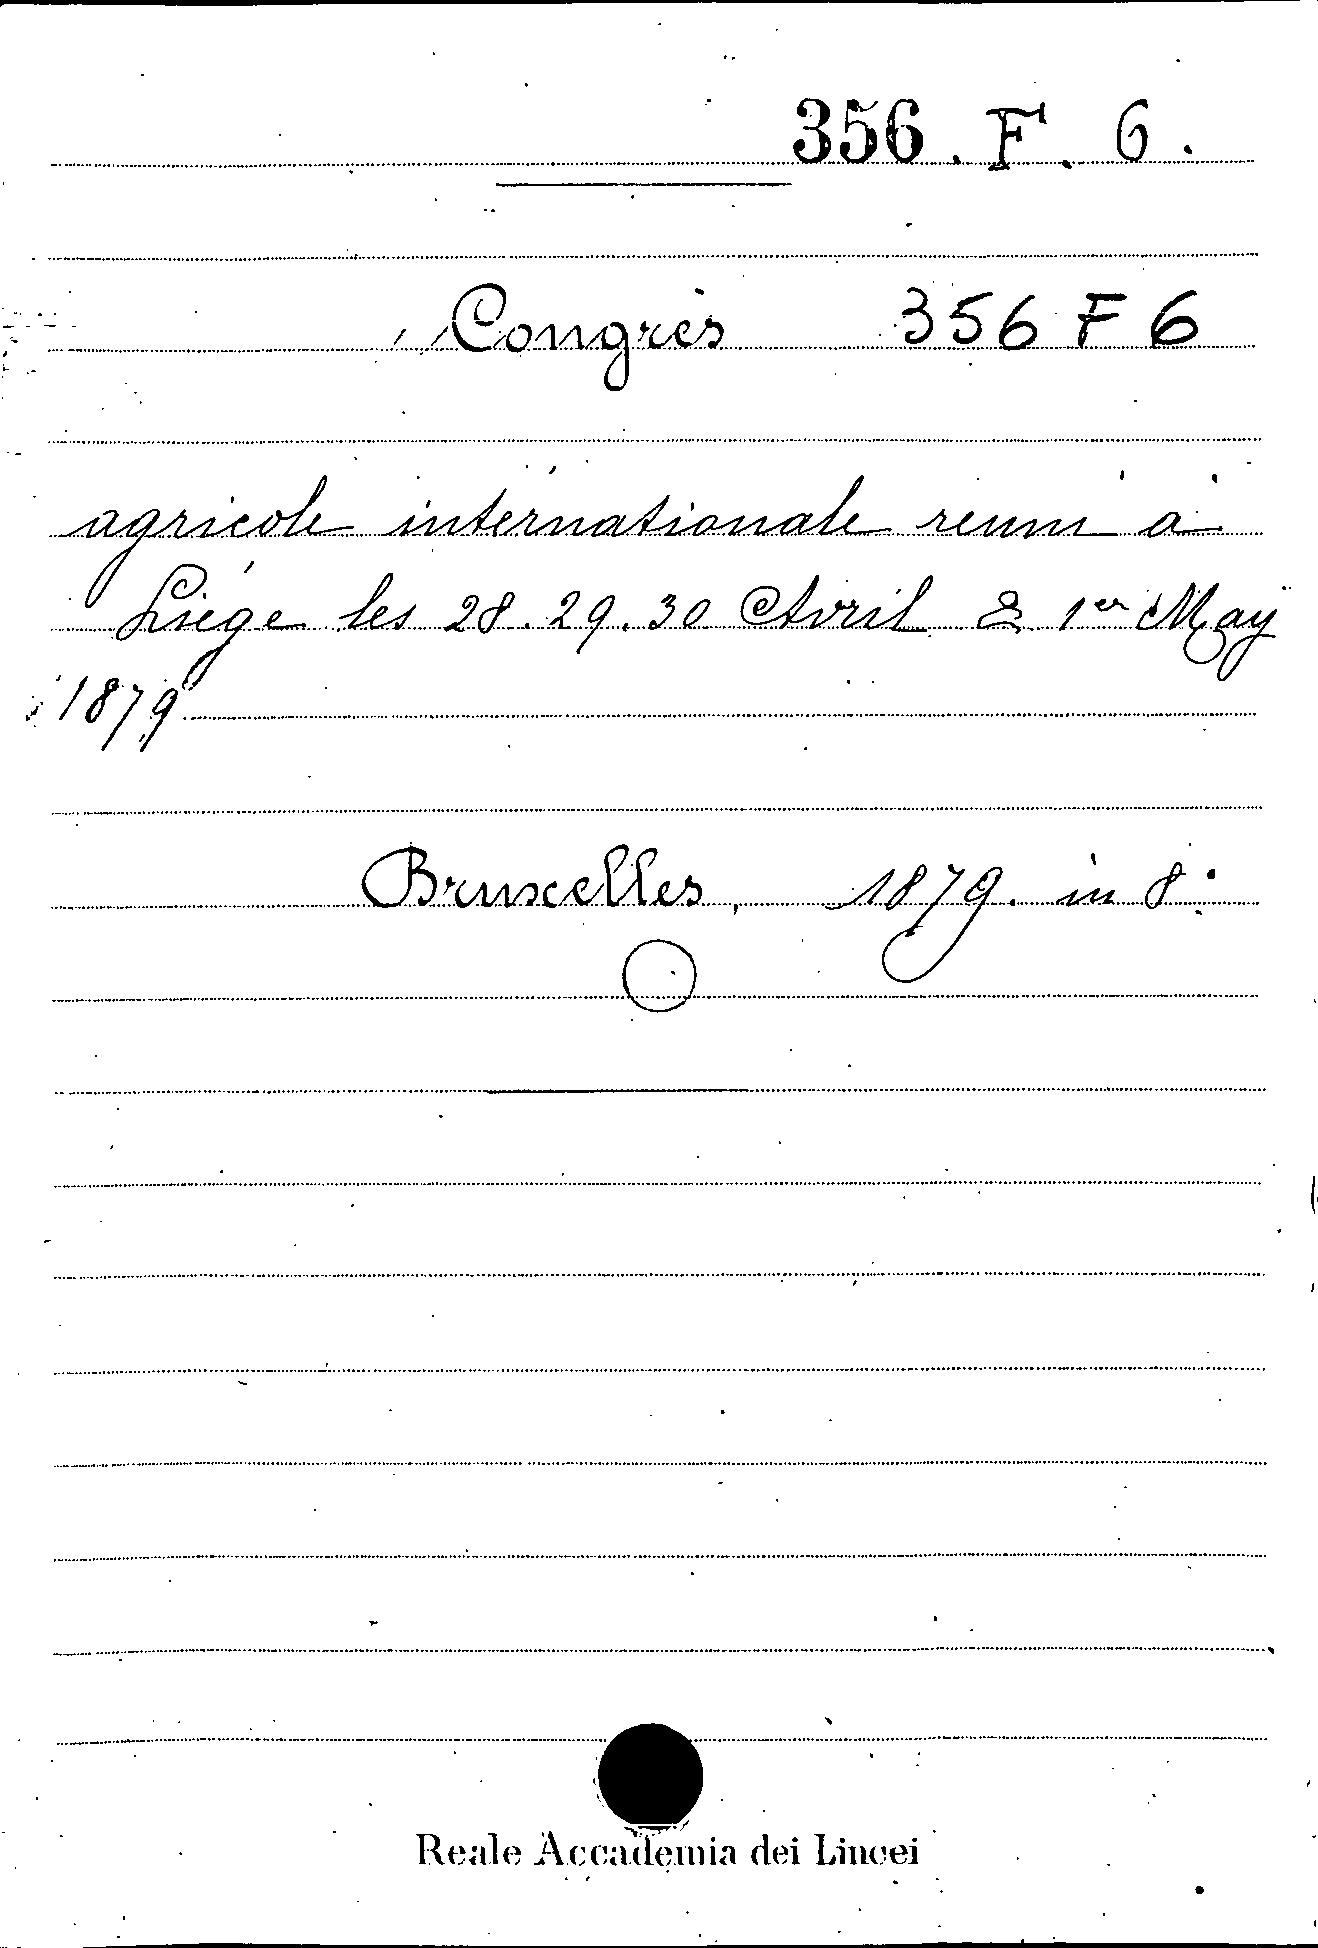 356. F. 6.
Congrès 356 F 6
agricole internationale reuni à
Liége les 28. 29. 30 Avril & 1er May
1879
Bruxelles, 1879. in 8°.
Reale Accademia dei Lincei